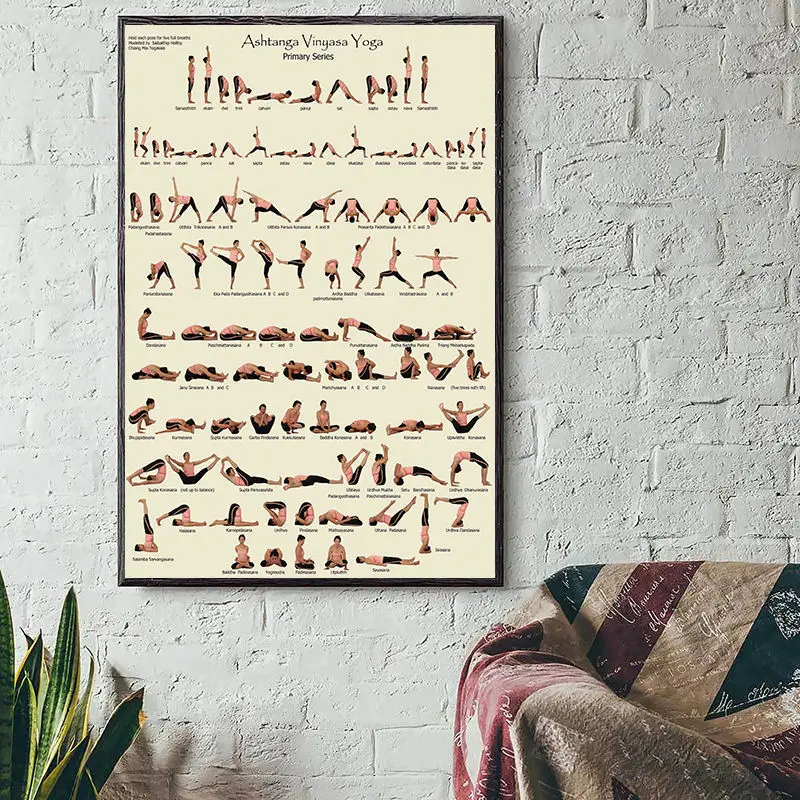 Ashtanga Vinyasa Yoga
Primary Series
Hold each pose for five full breaths
Modelled by
Chiang Mai
Samasthitih ekam dve trini catvari panca sat sapta astau nava Samasthitih
ekam dve trini catvari panca sat sapta astau nava dasa ekadasa dvadasa trayodasa caturdasa panca-dasa so-dasa sapta-dasa
Padangusthasana Utthita Trikonasana A and B Utthita Parsva Konasana A and B Prasarita Padottanasana A B C and D
Padahastasana
Parsvottanasana Utthita Padangusthasana A B C and D Ardha Baddha Utkatasana Virabhadrasana A and B
padmottanasana
Dandasana Paschimattanasana A B C and D Purvattanasana Ardha Baddha Padma Triang Mkhaekapada
Janu Sirsasana A B and C Marichyasana A B C and D Navasana (five times with lift)
Bhujapidasana Kurmasana Supta Kurmasana Garba Pindasana Kukkutasana Baddha Konasana A and B Konasana Upavishta Konasana
Supta Konasana (roll up to balance) Supta Parsvasahita Ubhaya Urdhva Mukha Setu Bandhasana Urdhva Dhanurasana
Padangusthasana Paschimattanasana
Salamba Sarvangasana Halasana Karnapidasana Urdhva Pindasana Matsyasana Uttana Padasana Sirsasana Urdhva Dandasana
Baddha Padmasana Yogimudra Padmasana Utpluthih Savasana